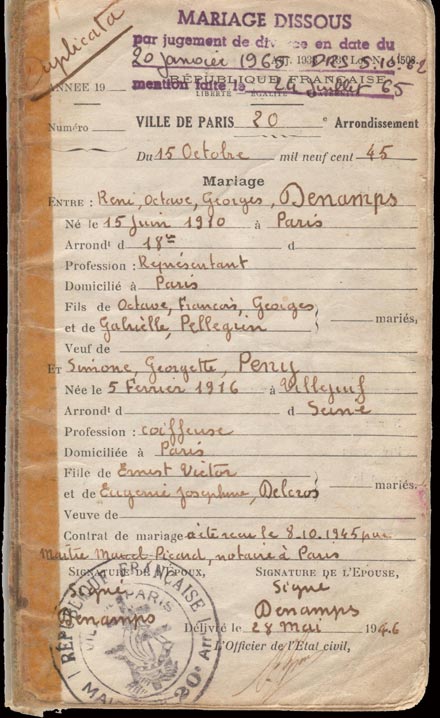 Duplicata
MARIAGE DISSOUS
par jugement de divorce en date du
20 janvier 1965
mention faite le 24 Juillet 65
RÉPUBLIQUE FRANÇAISE
LIBERTÉ ÉGALITÉ
ANNÉE 19
Numéro VILLE DE PARIS 20 e Arrondissement
Du 15 Octobre mil neuf cent 45
Mariage
ENTRE : René, Octave, Georges, Denamps
Né le 15 Juin 1910 à Paris
Arrondt d 18e d
Profession : Représentant
Domicilié à Paris
Fils de Octave, François, Georges
et de Gabrielle, Pellegrin
mariés,
Veuf de
ET Simone, Georgette, Peny
Née le 5 Février 1916 à Villejuif
Arrondt d d Seine
Profession : coiffeuse
Domiciliée à Paris
Fille de Ernest Victor
et de Eugénie Joséphine, Delcros
mariés,
Veuve de
Contrat de mariage acte reçu le 8.10.1945 par
Maître Marcel Picard, notaire à Paris
SIGNATURE DE L'ÉPOUX, SIGNATURE DE L'ÉPOUSE,
Signé Signé
Denamps Denamps
Délivré le 28 Mai 1946
L'Officier de l'État civil,
RÉPUBLIQUE FRANÇAISE
VILLE DE PARIS
MAIRIE 20e Arrt